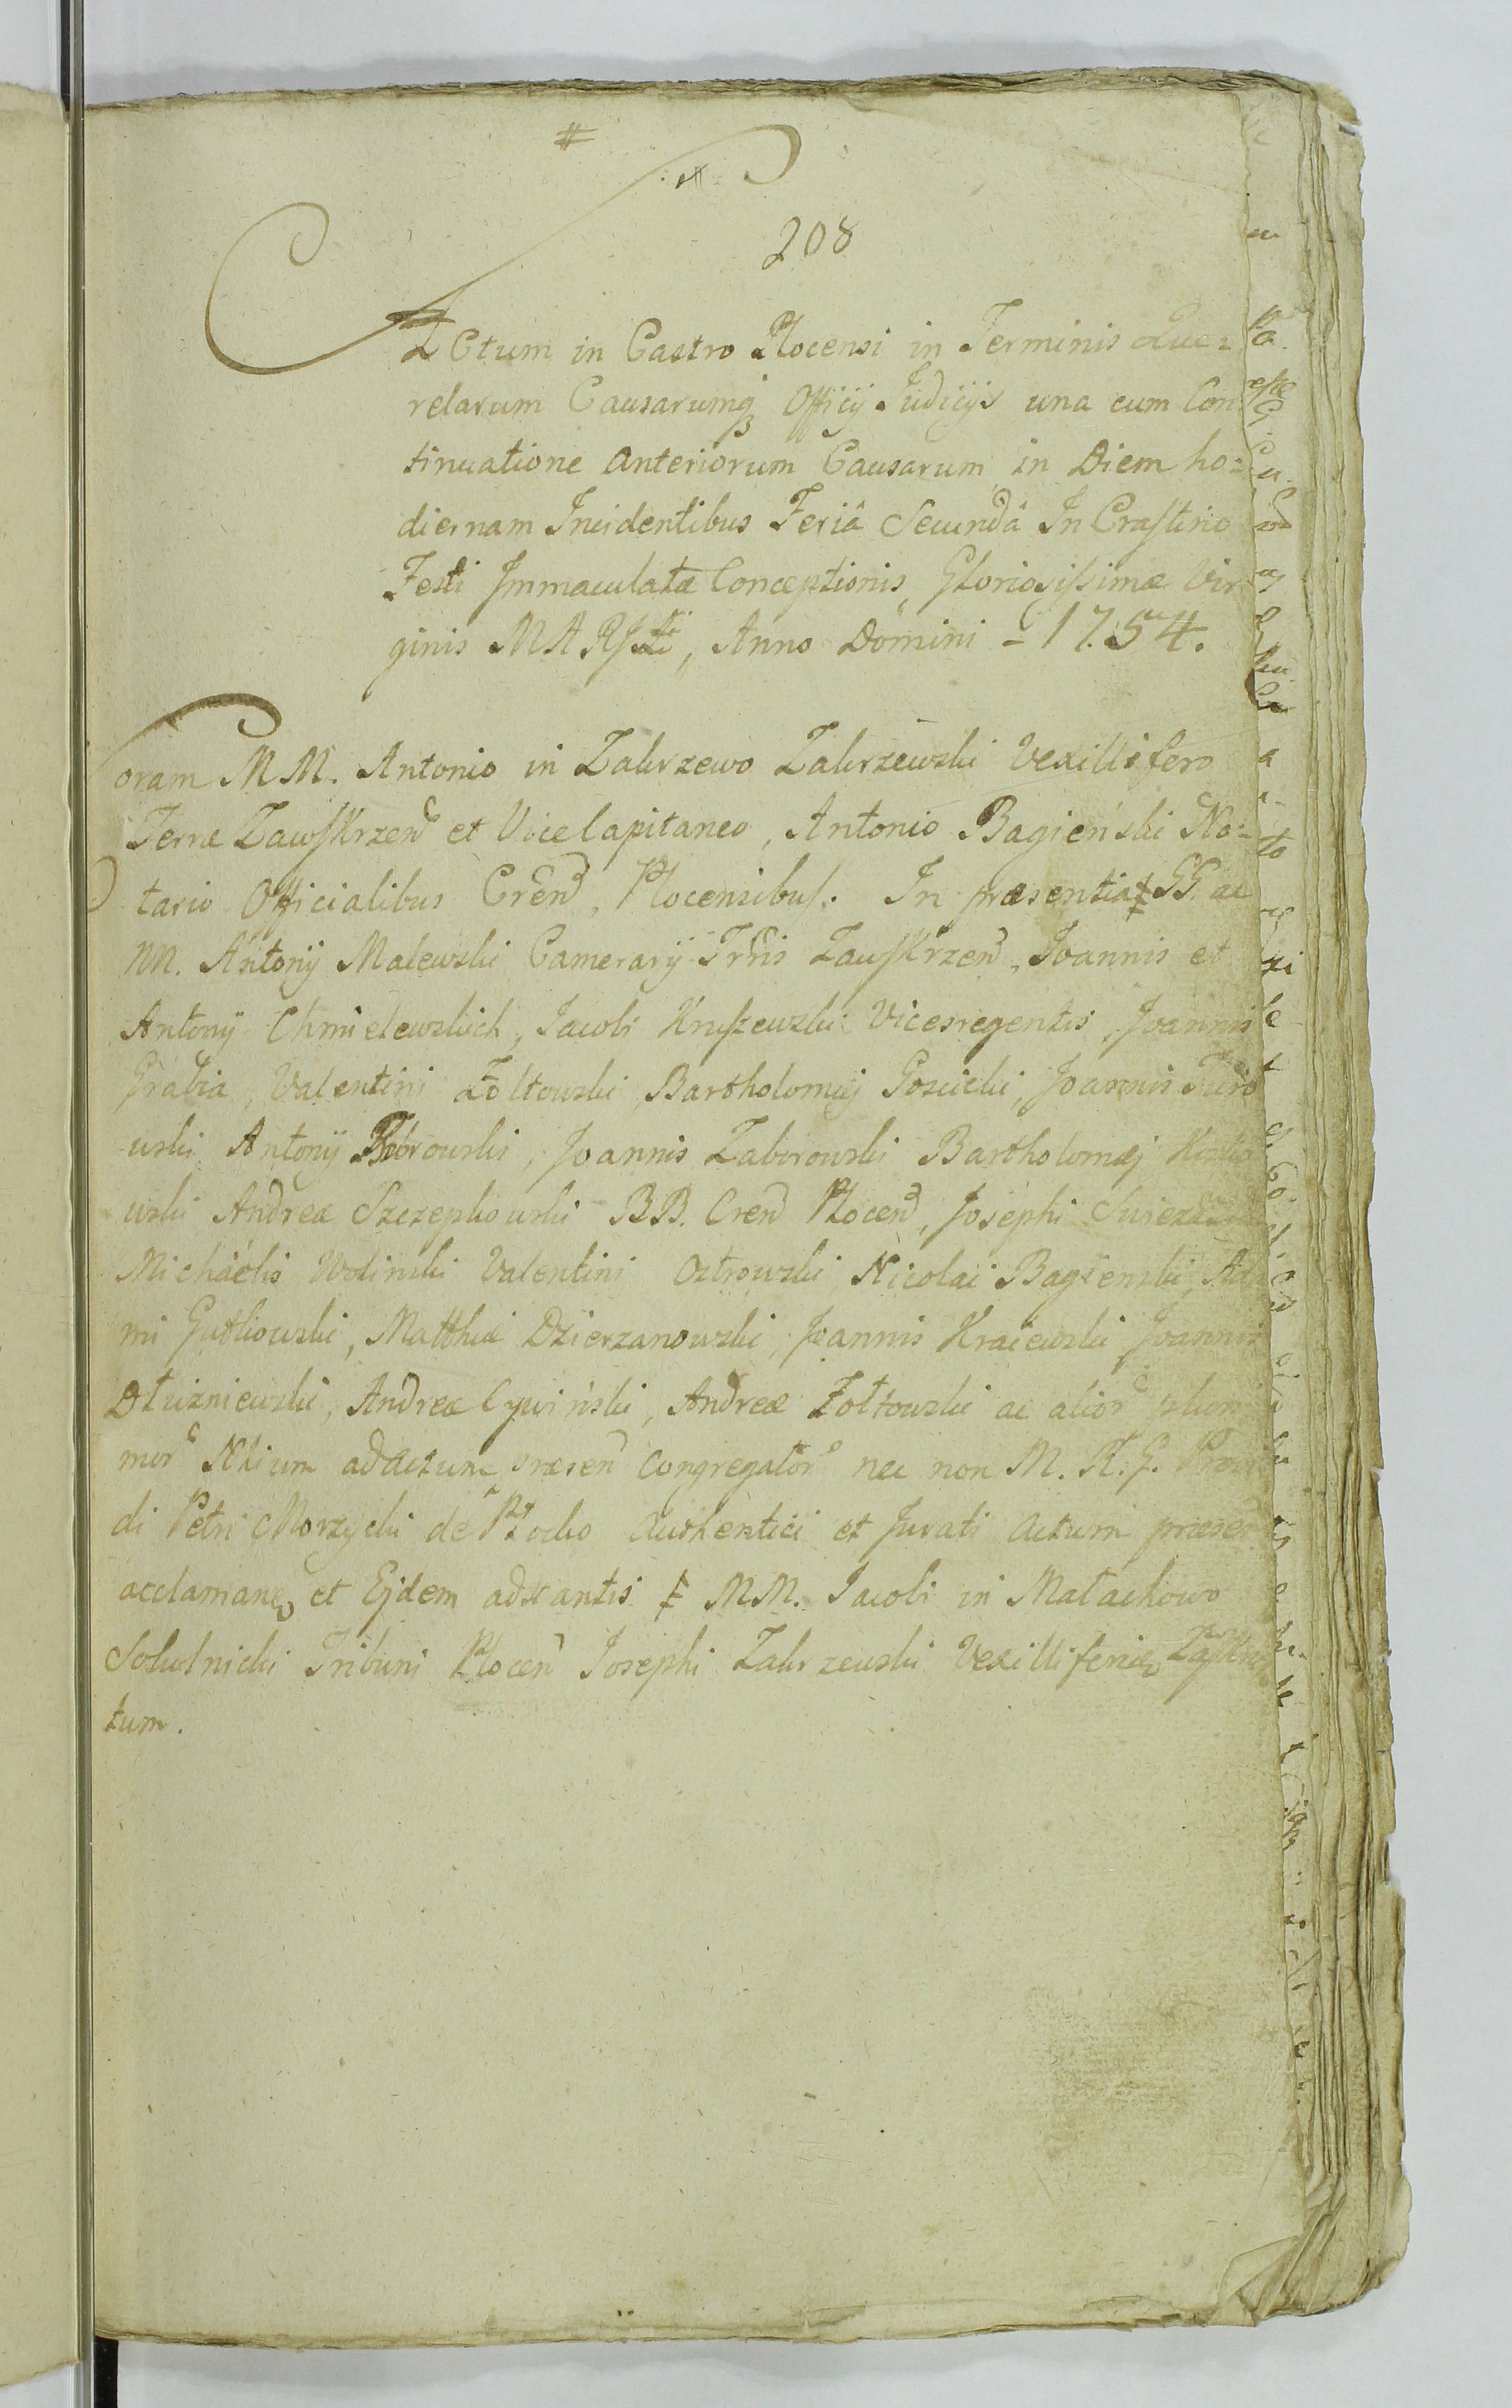 208
Actum in Castro Plocensi in Terminis Que=
relarum Causarumq Officij Judicijs una cum Con
tinuatione Anteriorum Causarum in Diem ho=
diernam Incidentibus Feriâ Secundâ In Crastino
Festi Immaculatæ Conceptionis, Gloriosissimæ Vir
ginis MARIÆ, Anno Domini - 1754.
Coram MM. Antonio in Zakrzewo Zakrzewski Vexillifero
Terræ Zawskrzen et ViceCapitaneo, Antonio Bagieński No=
tario Officialibus Cren, Plocensibus. In præsentia GG. ac
NN. Antonij Malewski Camerarij Trris Zawskrzen, Joannis et
Antonij Chmielewskich, Jacobi Kruszewski Vicesregentis, Joannis
Grabia, Valentini Żołtowski Bartholomæj Gościcki, Joannis
wski Antonij Bobrowski, Joannis Zaborowski Bartholomæj
wski Andreæ Szczepkowski BB. Cren Plocen, Josephi
Michaelis Wolinski Valentini Ostrowski Nicolai Bagienski, Ada
mi Gutkowski, Matthæi Dzierzanowski, Joannis Kraiewski Joannis
Dłużniewski, Andreæ Cywiński, Andreæ Żołtowski ac alior pluri
mor Nlium ad Actum præsen Congregator nec non M. R. G. Provi
di Petri Morzycki de Płocko Authentici et Jurati Actum præsen
acclaman et Ejdem adstantis MM. Jacobi in Małachowo
Sokolnicki Tribuni Plocen Josephi Zakrzewski Vexilliferi
tum.